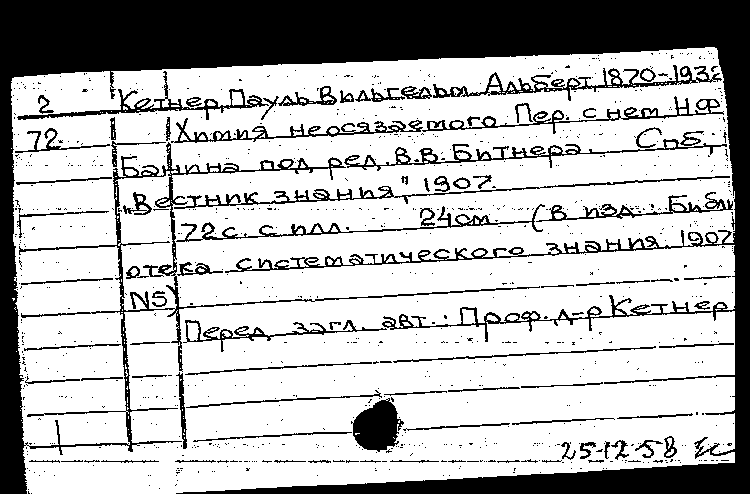 2 Кетнер, Пауль Вильгельм Альберт, 1870-1932
72. Химия неосязаемого. Пер. с нем. Н.Ф
Банина под ред. В.В. Битнера. Спб,
"Вестник знания," 1907.
72 с. с илл. 24 см. (В изд.: Библи
отека систематического знания. 1907
N5).
Перед загл. авт.: Проф. д-р Кетнер
25-12-58